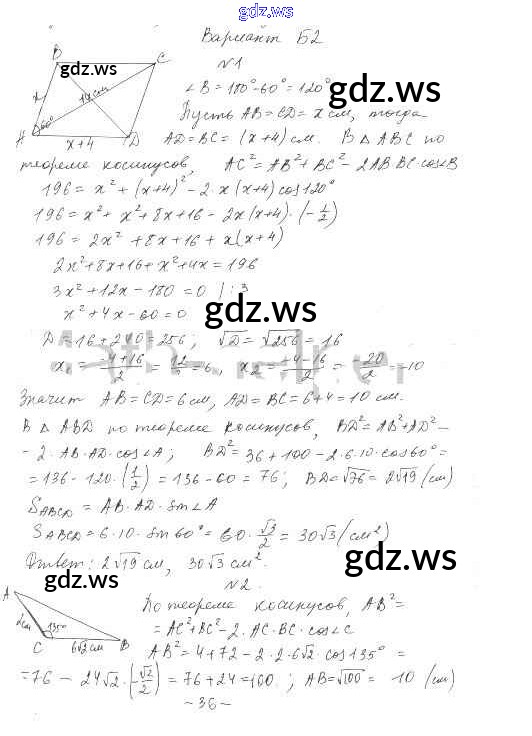 gdz.ws
Вариант Б2
№1
B
C
gdz.ws
∠B = 180°-60° = 120°
gdz.ws
x
14 см
Пусть AB = CD = x см, тогда
A
60°
x+4
D
AD = BC = (x+4) см. В △ABC по
теореме косинусов, AC² = AB² + BC² - 2AB·BC·cos∠B
196 = x² + (x+4)² - 2·x(x+4)cos120°
196 = x² + x² + 8x + 16 - 2x(x+4)·(-1/2)
196 = 2x² + 8x + 16 + x(x+4)
2x² + 8x + 16 + x² + 4x = 196
3x² + 12x - 180 = 0 /:3
x² + 4x - 60 = 0
gdz.ws
gdz.ws
D = 16 + 240 = 256; √D = √256 = 16
x₁ = (-4+16)/2 = 12/2 = 6, x₂ = (-4-16)/2 = -20/2 = -10
Значит AB = CD = 6 см, AD = BC = 6+4 = 10 см.
В △ABD по теореме косинусов, BD² = AB² + AD² -
- 2·AB·AD·cos∠A; BD² = 36 + 100 - 2·6·10·cos60° =
= 136 - 120·(1/2) = 136 - 60 = 76; BD = √76 = 2√19 (см)
S_ABCD = AB·AD·sin∠A
S_ABCD = 6·10·sin60° = 60·√3/2 = 30√3 (см²)
Ответ: 2√19 см, 30√3 см².
gdz.ws
gdz.ws
№2.
A
2см
135°
C
6√2 см
B
По теореме косинусов, AB² =
= AC² + BC² - 2·AC·BC·cos∠C
AB² = 4 + 72 - 2·2·6√2·cos135° =
= 76 - 24√2·(-√2/2) = 76 + 24 = 100.; AB = √100 = 10 (см)
gdz.ws
gdz.ws
- 36 -